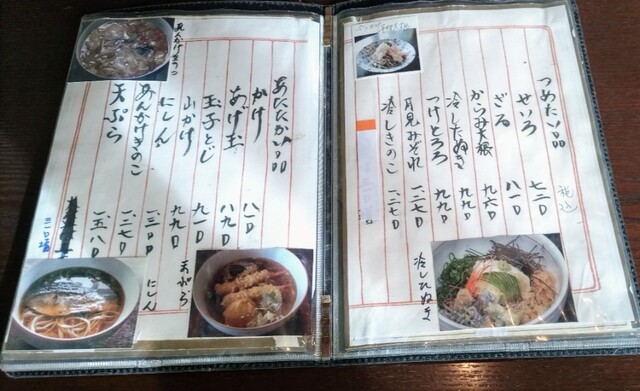 つめたい品
税込
せいろ 七二〇
ざる 八一〇
からみ大根 九六〇
冷したぬき 九九〇
つけとろろ 九九〇
月見みぞれ 一、二七〇
冷しきのこ 一、二七〇
冷したぬき
あたたかい品
かけ 八一〇
あげ玉 八九〇
玉子とじ 九一〇
山かけ 九九〇
にしん 一、三一〇
あんかけきのこ 一、二七〇
天ぷら 一、五八〇
天ぷら
にしん